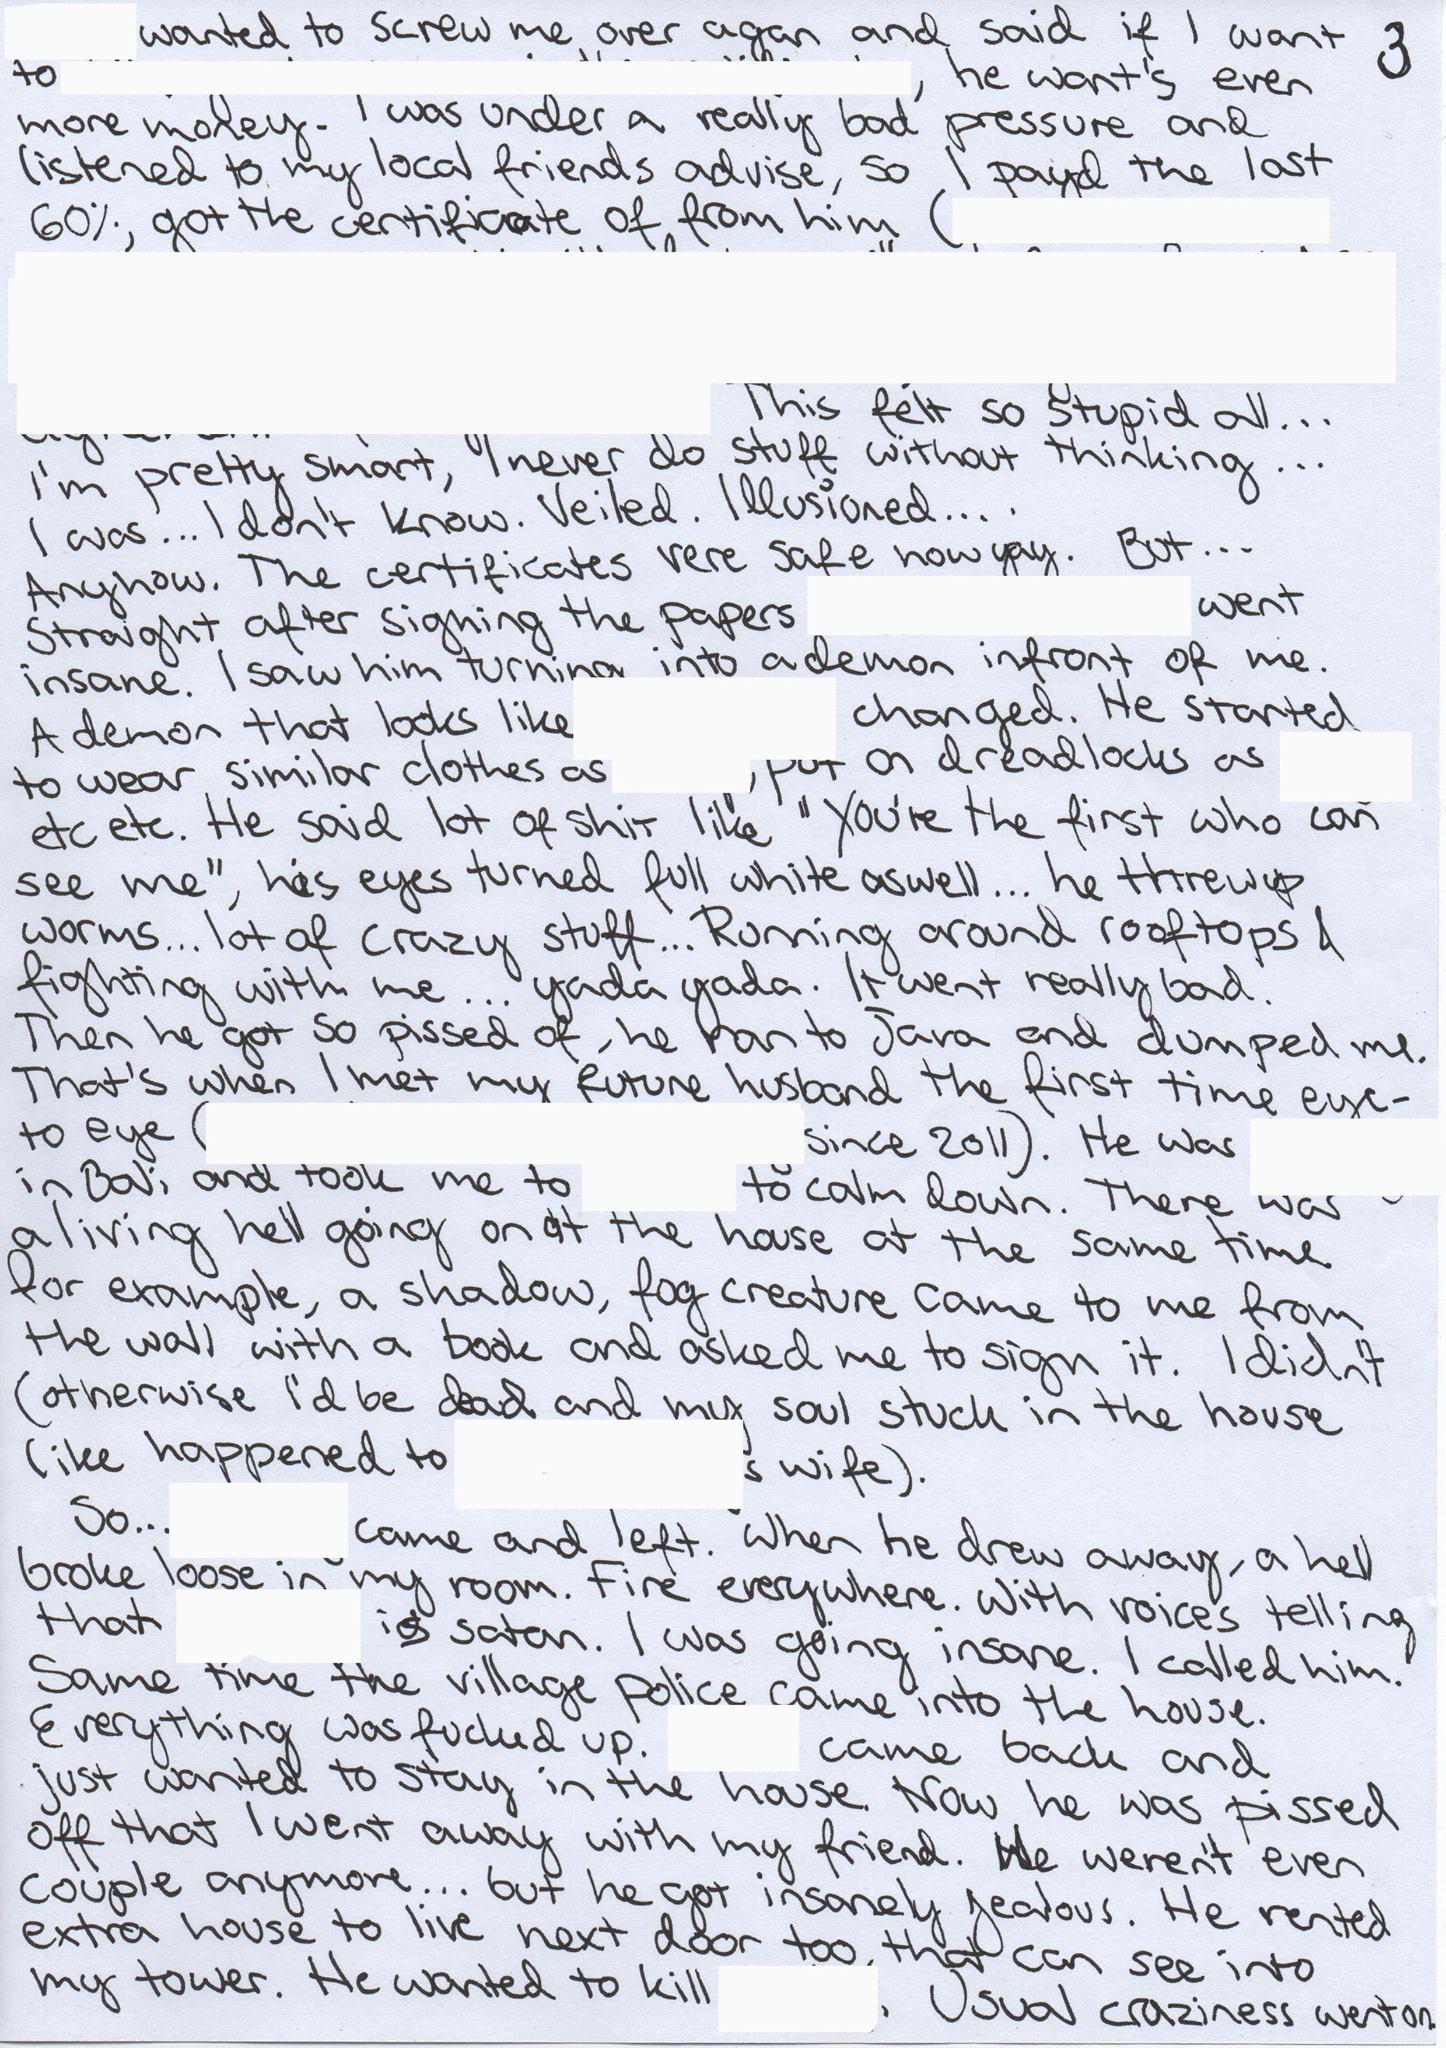 wanted to screw me over agan and said if I want
3
to , he want's even
more money. I was under a really bad pressure and
listened to my local friends advise, so I payd the last
60%, got the certificate of from him (
This felt so stupid all...
I'm pretty smart, I never do stuff without thinking...
I was... I don't know. Veiled. Illusioned....
Anyhow. The certificates vere safe now yay. But...
Straight after signing the papers went
insane. I saw him turning into a demon infront of me.
A demon that looks like changed. He started
to wear similar clothes as , put on dreadlocks as
etc etc. He said lot of shit like "You're the first who can
see me", his eyes turned full white aswell... he threw up
worms... lot of crazy stuff... Running around rooftops &
fighting with me... yada yada. It went really bad.
Then he got so pissed of, he ran to Java and dumped me.
That's when I met my future husband the first time eye-
to eye ( since 2011). He was
in Bali and took me to to calm down. There was
a living hell going on at the house at the same time.
for example, a shadow, fog creature came to me from
the wall with a book and asked me to sign it. I didn't
(otherwise I'd be dead and my soul stuck in the house
like happened to s wife).
So... came and left. When he drew away, a hell
broke loose in my room. Fire everywhere. With voices telling
that is satan. I was going insane. I called him.
Same time the village police came into the house.
Everything was fucked up. came back and
just wanted to stay in the house. Now he was pissed
off that I went away with my friend. We weren't even
couple anymore... but he got insanely jealous. He rented
extra house to live next door too, that can see into
my tower. He wanted to kill . Usual craziness went on